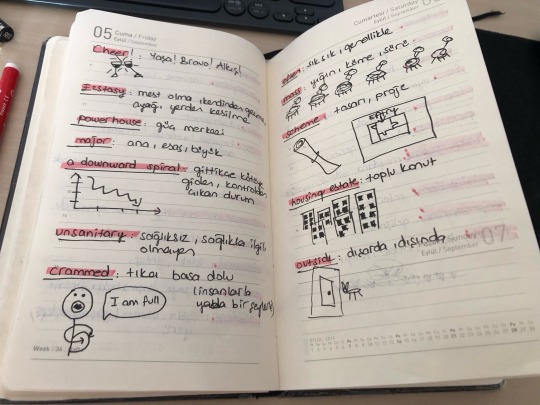 05 Cuma / Friday
Eylül / September
Cheer! : Yaşa! Bravo! Alkış!
Ecstasy: mest olma, kendinden geçme,
ayağı yerden kesilme
powerhouse: güç merkezi
major: ana, esas, büyük
a downward spiral: gittikçe kötüye
giden, kontrolden
çıkan durum
unsanitary: sağlıksız, sağlıkla ilgili
olmayan
crammed: tıka basa dolu
(insanlarla
yada bir şeylerle)
I am full
Week
Cumartesi / Saturday
Eylül / September
often: sık sık, genellikle
mass: yığın, küme, sürü
scheme: tasarı, proje
housing estate: toplu konut
07
Eylül / September
outside: dışarda, dışında